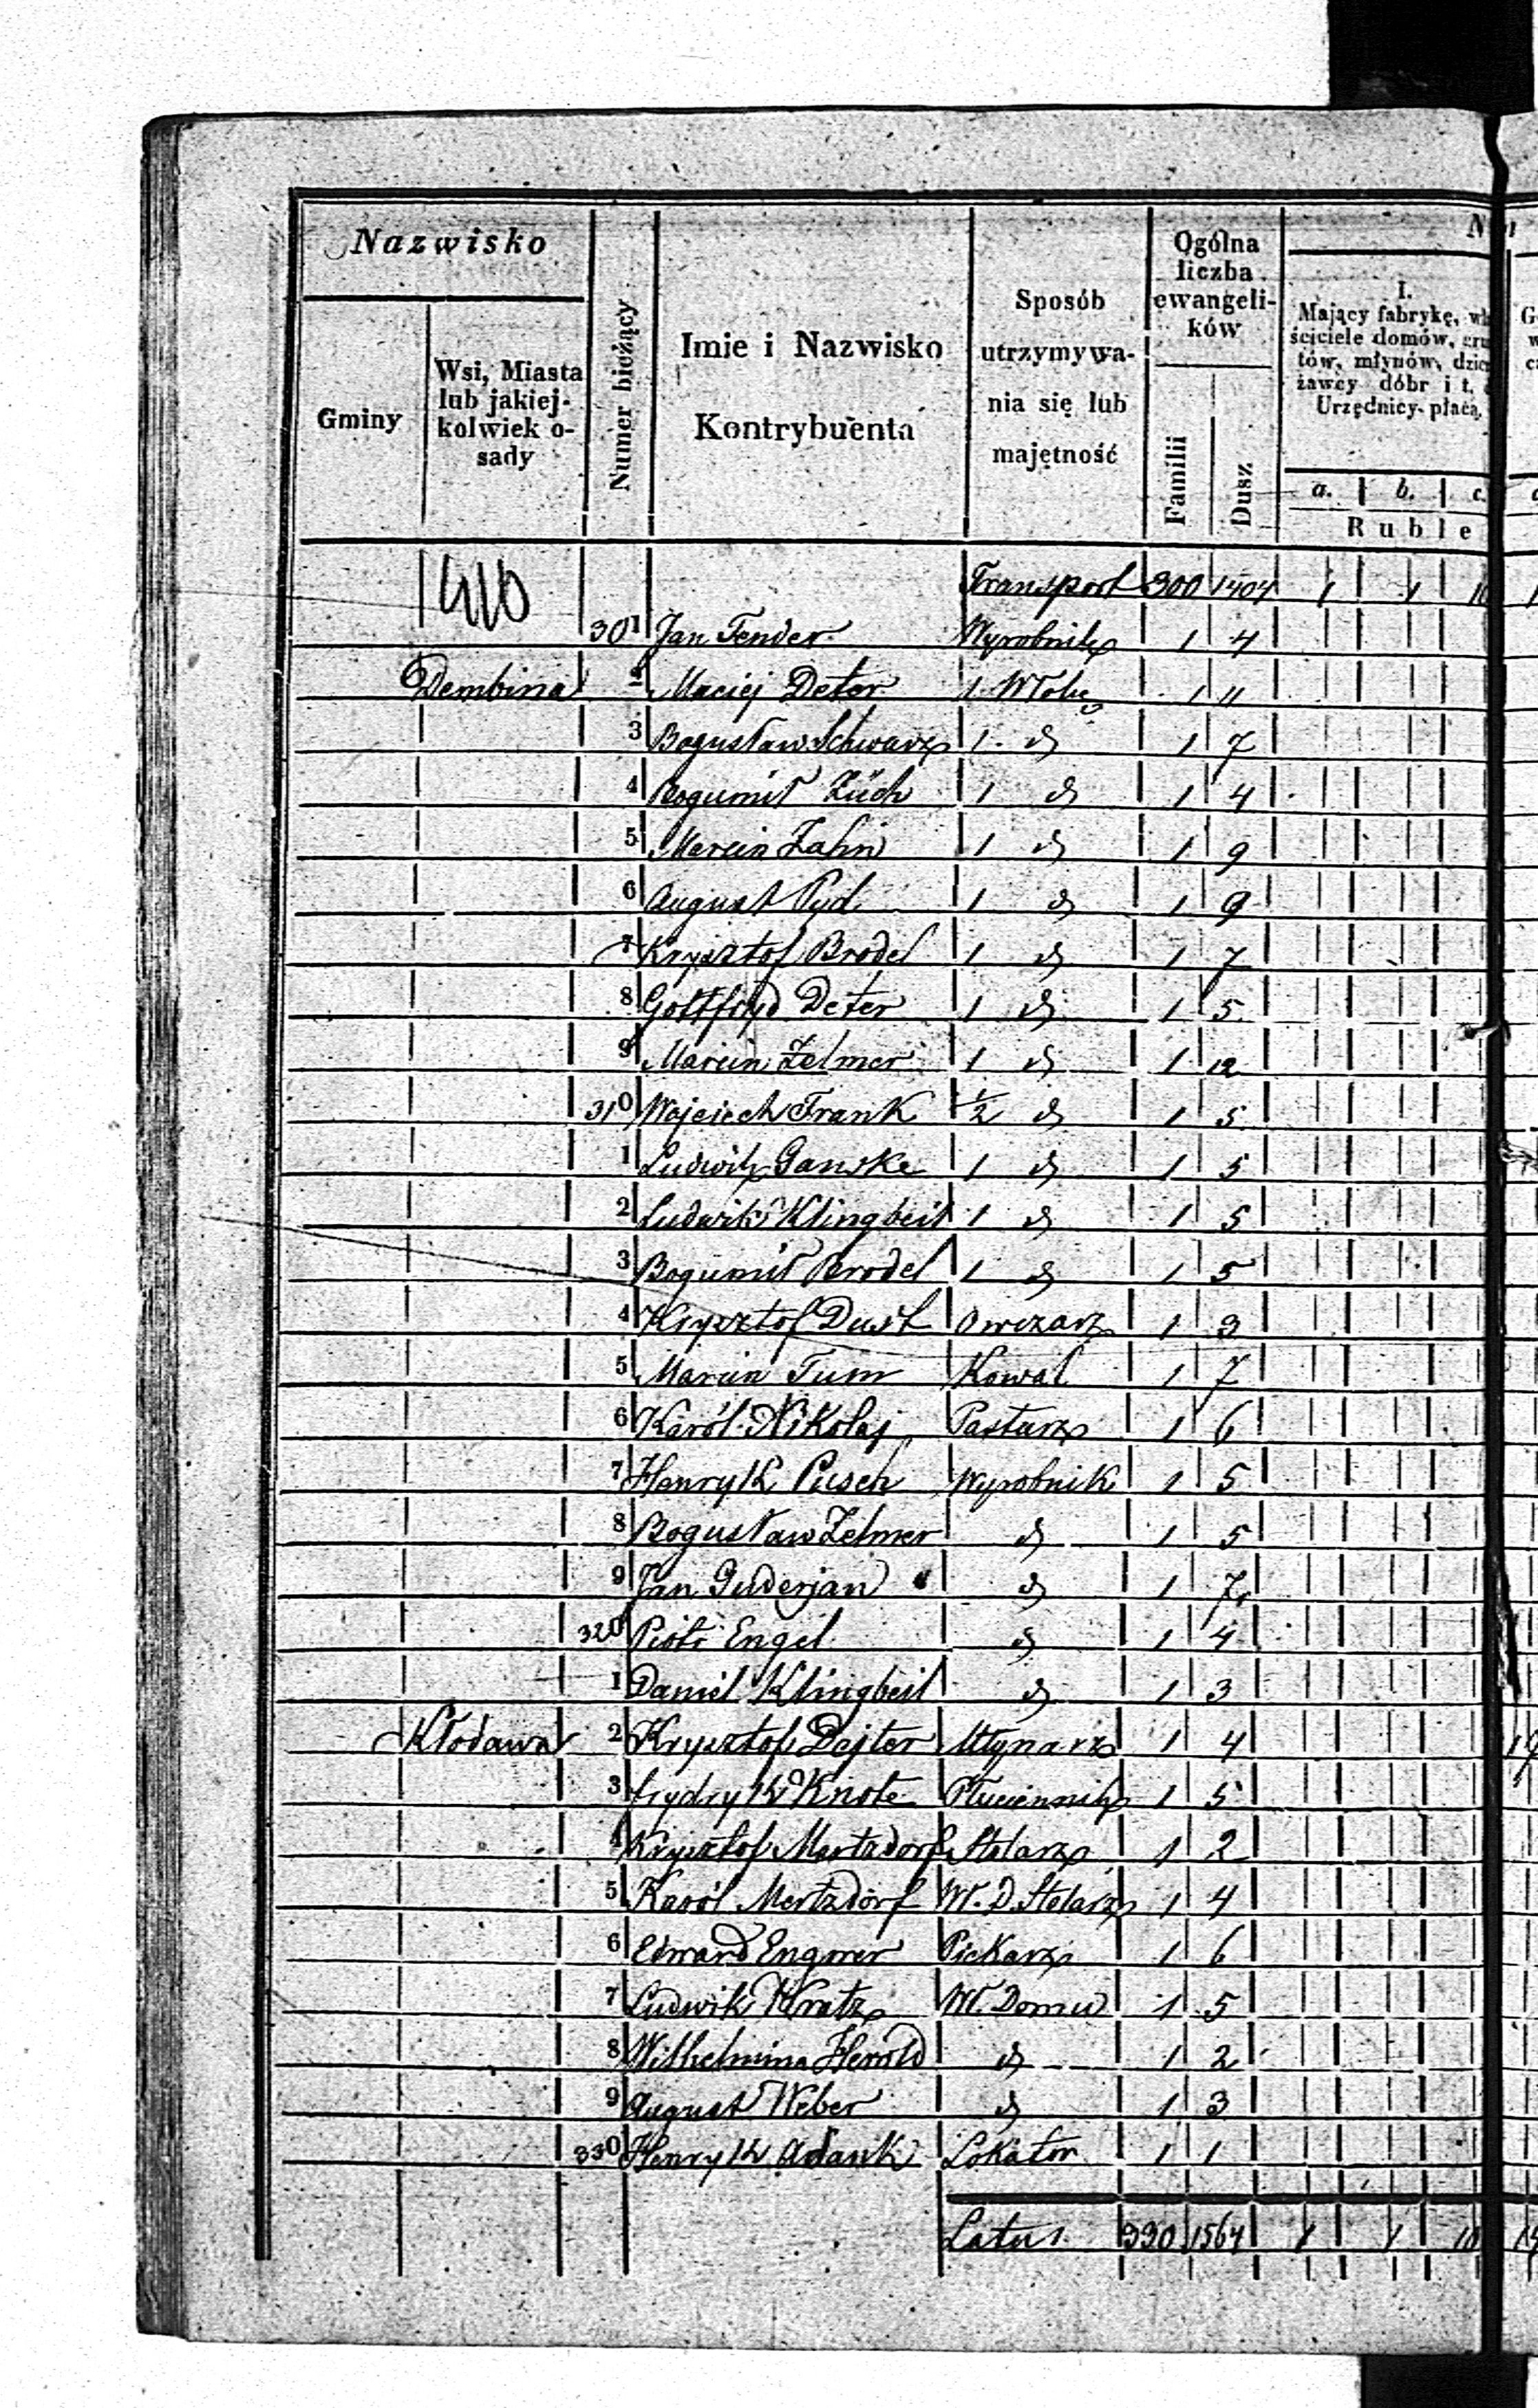 Nazwisko
Gminy
Wsi, Miasta lub jakiej-kolwiek o-sady
Numer bieżący
Imie i Nazwisko
Kontrybuenta
Sposób utrzymywa-nia się lub majętność
Ogólna liczba ewangeli-ków
Familii
Dusz
I.
Mający fabrykę,
ściciele domów,
tów, młynów,
żawcy dóbr i t.
Urzędnicy płacą,
a. b. c.
Ruble
410
Transport 300 1404 1 1 10
301 Jan Fender Wyrobnik 1 4
Dembina 2 Maciej Deter 1 Włokę 1 11
3 Bogusław Schwarz 1 d 1 7
4 Bogumił Züch 1 d 1 4
5 Marcin Zahn 1 d 1 9
6 August Pyd 1 d 1 9
7 Krysztof Brodel 1 d 1 7
8 Gottfryd Deter 1 d 1 5
9 Marcin Zelmer 1 d 1 12
310 Wojciech Frank 1/2 d 1 5
1 Ludwik Ganske 1 d 1 5
2 Ludwik Klingbeil 1 d 1 5
3 Bogumił Brodel 1 d 1 5
4 Krysztof Dust Owczarz 1 3
5 Marcin Tum Kowal 1 7
6 Karól Nikolaj Pastarz 1 6
7 Henryk Pusch Wyrobnik 1 5
8 Bogusław Zelmer d 1 5
9 Jan Guderjan d 1 7
320 Piotr Engel d 1 4
1 Daniel Klingbeil d 1 3
Kłodawa 2 Krysztof Dejter Młynarz 1 4
3 Frydryk Knote Płuciennik 1 5
4 Krysztof Mertzdorf Stolarz 1 2
5 Karól Mertzdorf W. D. Stolarz 1 4
6 Edward Engmer Piekarz 1 6
7 Ludwik Kratz W. Domu 1 5
8 Wilhelmina Herold d 1 2
9 August Weber d 1 3
330 Henryk Adank Lokator 1 1
Latus 330 1564 1 1 10